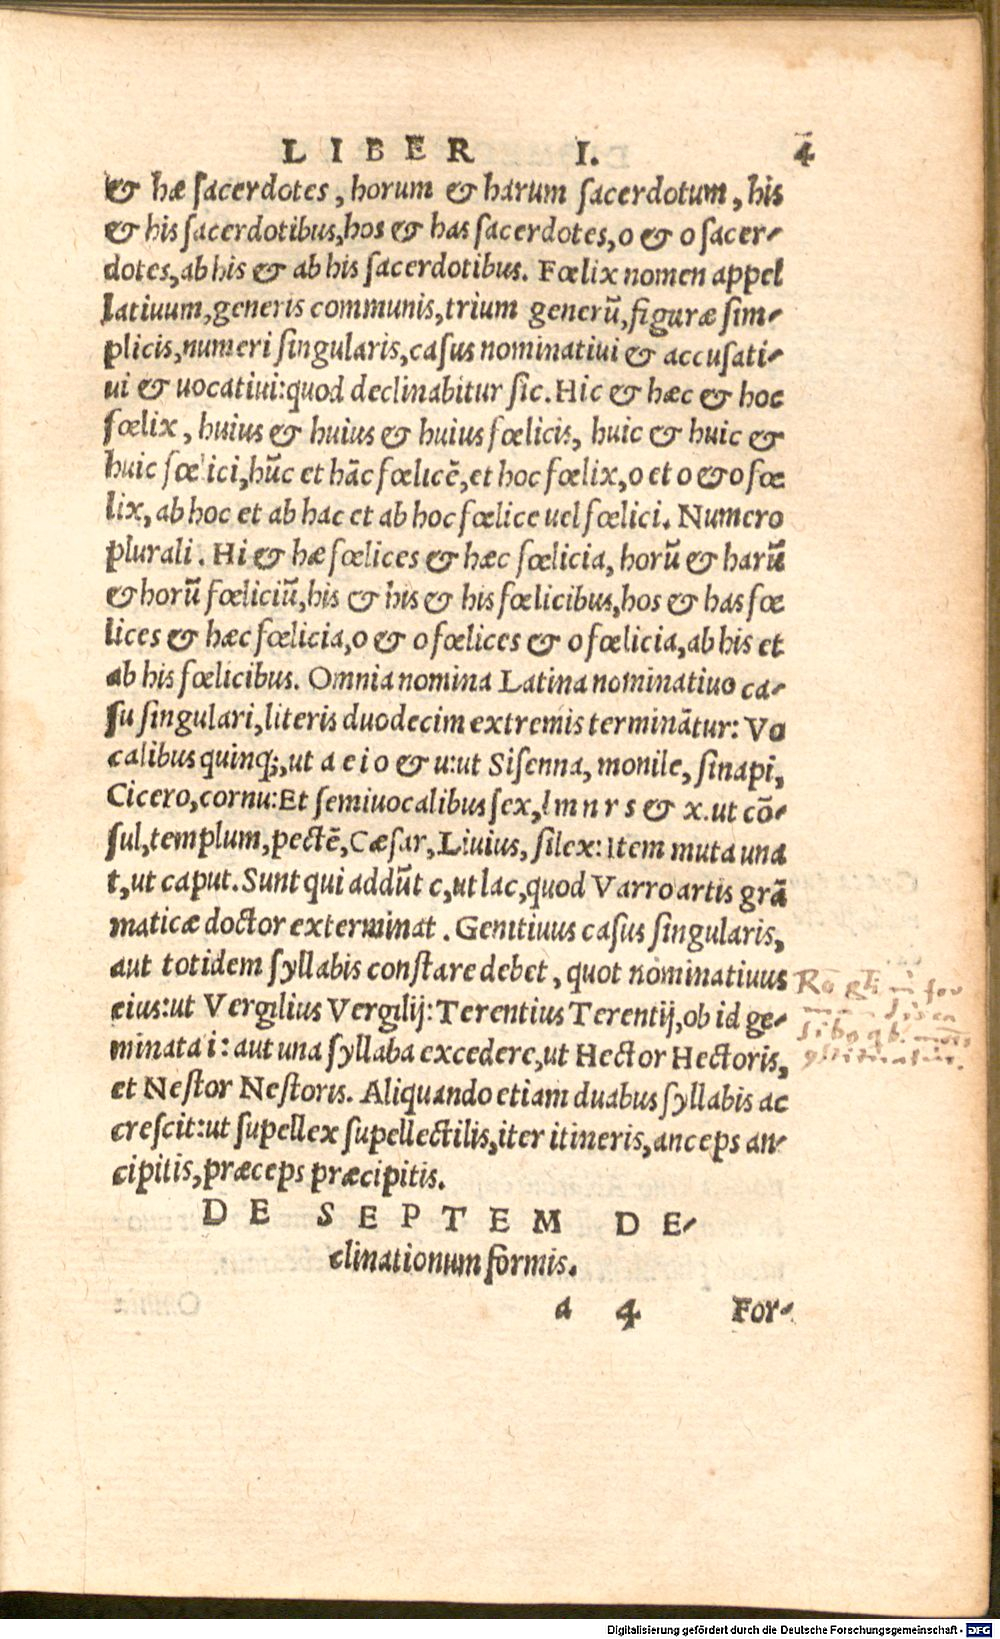 LIBER I. 4
& hæ sacerdotes, horum & harum sacerdotum, his
& his sacerdotibus, hos & has sacerdotes, o & o sacer-
dotes, ab his & ab his sacerdotibus. Fœlix nomen appel
latiuum, generis communis, trium generū, figuræ sim-
plicis, numeri singularis, casus nominatiui & accusati-
ui & uocatiui: quod declinabitur sic. Hic & hæc & hoc
fœlix, huius & huius & huius fœlicis, huic & huic &
huic fœlici, hūc et hāc fœlicē, et hoc fœlix, o et o & o fœ
lix, ab hoc et ab hac et ab hoc fœlice uel fœlici. Numero
plurali. Hi & hæ fœlices & hæc fœlicia, horū & harū
& horū fœliciū, his & his & his fœlicibus, hos & has fœ
lices & hæc fœlicia, o & o fœlices & o fœlicia, ab his et
ab his fœlicibus. Omnia nomina Latina nominatiuo ca-
su singulari, literis duodecim extremis terminātur: Vo
calibus quinq;, ut a e i o & u: ut Sisenna, monile, sinapi,
Cicero, cornu: Et semiuocalibus sex, l m n r s & x. ut cō-
sul, templum, pectē, Cæsar, Liuius, silex: Item muta una
t, ut caput. Sunt qui addūt c, ut lac, quod Varro artis grā
maticæ doctor exterminat. Genitiuus casus singularis,
aut totidem syllabis constare debet, quot nominatiuus
eius: ut Vergilius Vergilij: Terentius Terentij, ob id ge-
minata i: aut una syllaba excedere, ut Hector Hectoris,
et Nestor Nestoris. Aliquando etiam duabus syllabis ac
crescit: ut supellex supellectilis, iter itineris, anceps an-
cipitis, præceps præcipitis.
DE SEPTEM DE-
clinationum formis.
a 4 For-
Digitalisierung gefördert durch die Deutsche Forschungsgemeinschaft - DFG